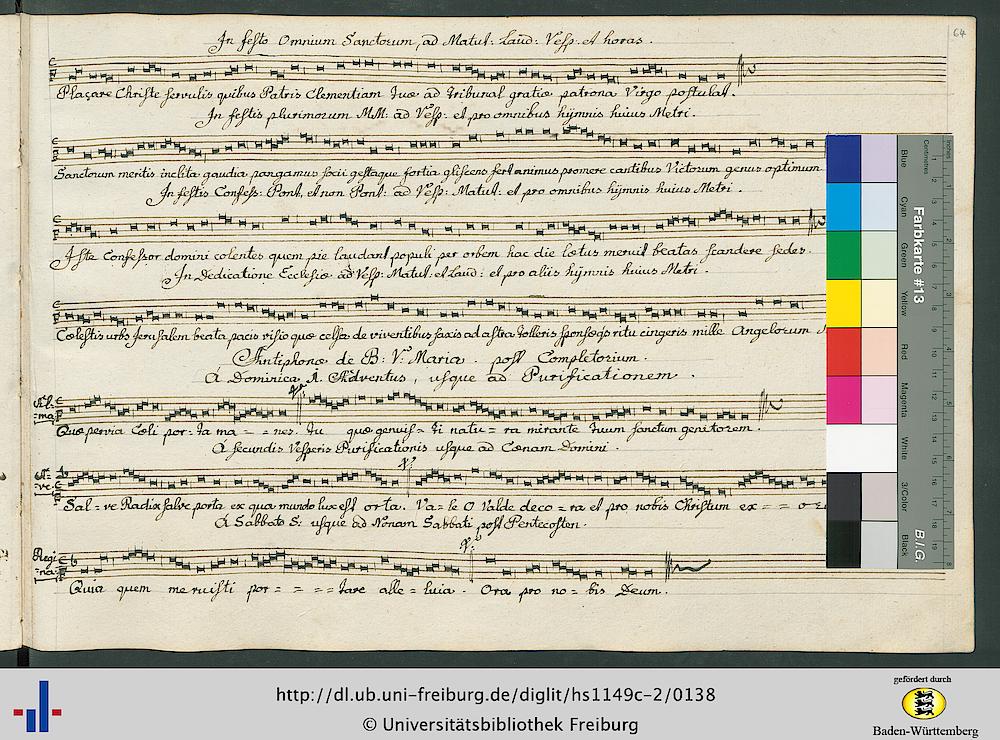 64
In festo Omnium Sanctorum, ad Matut: Laud: Vesp. et horas.
Plaçare Christe servulis quibus Patris Clementiam tuæ ad tribunal gratiæ patrona Virgo postulat.
In festis plurimorum MM: ad Vesp: et pro omnibus hÿmnis huius Metri.
Sanctorum meritis inclita gaudia pangamus socii gestaque fortia gliscens fert animus promere cantibus Victorum genus optimum
In festis Confess: Pont, et non Pont: ad Vesp: Matut: et pro omnibus hÿmnis huius Metri.
Iste Confessor domini colentes quem pie laudant populi per orbem hac die lætus meruit beatas scandere sedes.
In Dedicatione Ecclesiæ ad Vesp: Matut: et Laud: et pro aliis hÿmnis huius Metri.
Cœlestis urbs Jerusalem beata pacis visio quæ celsa de viventibus saxis ad astra tolleris sponsæqs ritu cingeris mille Angelorum
Antiphonæ de B: V: Maria. post Completorium.
A Dominica 1. Adventus, usque ad Purificationem.
Al:
ma
Quæ pervia Cœli por=ta ma = = nes. Tu quæ genuis= ti natu = ra mirante tuum sanctum genitorem.
A secundis Vesperis Purificationis usque ad Cœnam Domini.
A=
ve.
Sal = ve Radix salve porta ex qua mundo lux est orta. Va = le O Valde deco = ra et pro nobis Christum ex = =
A Sabbato S: usque ad Nonam Sabbati post Pentecosten.
Regi
na:
Quia quem meruisti por = = = = tare alle = luia. Ora pro no = bis Deum.
Centimetres
Inches
Farbkarte #13
B.I.G.
Blue
Cyan
Green
Yellow
Red
Magenta
White
3/Color
Black
http://dl.ub.uni-freiburg.de/diglit/hs1149c-2/0138
© Universitätsbibliothek Freiburg
gefördert durch
Baden-Württemberg